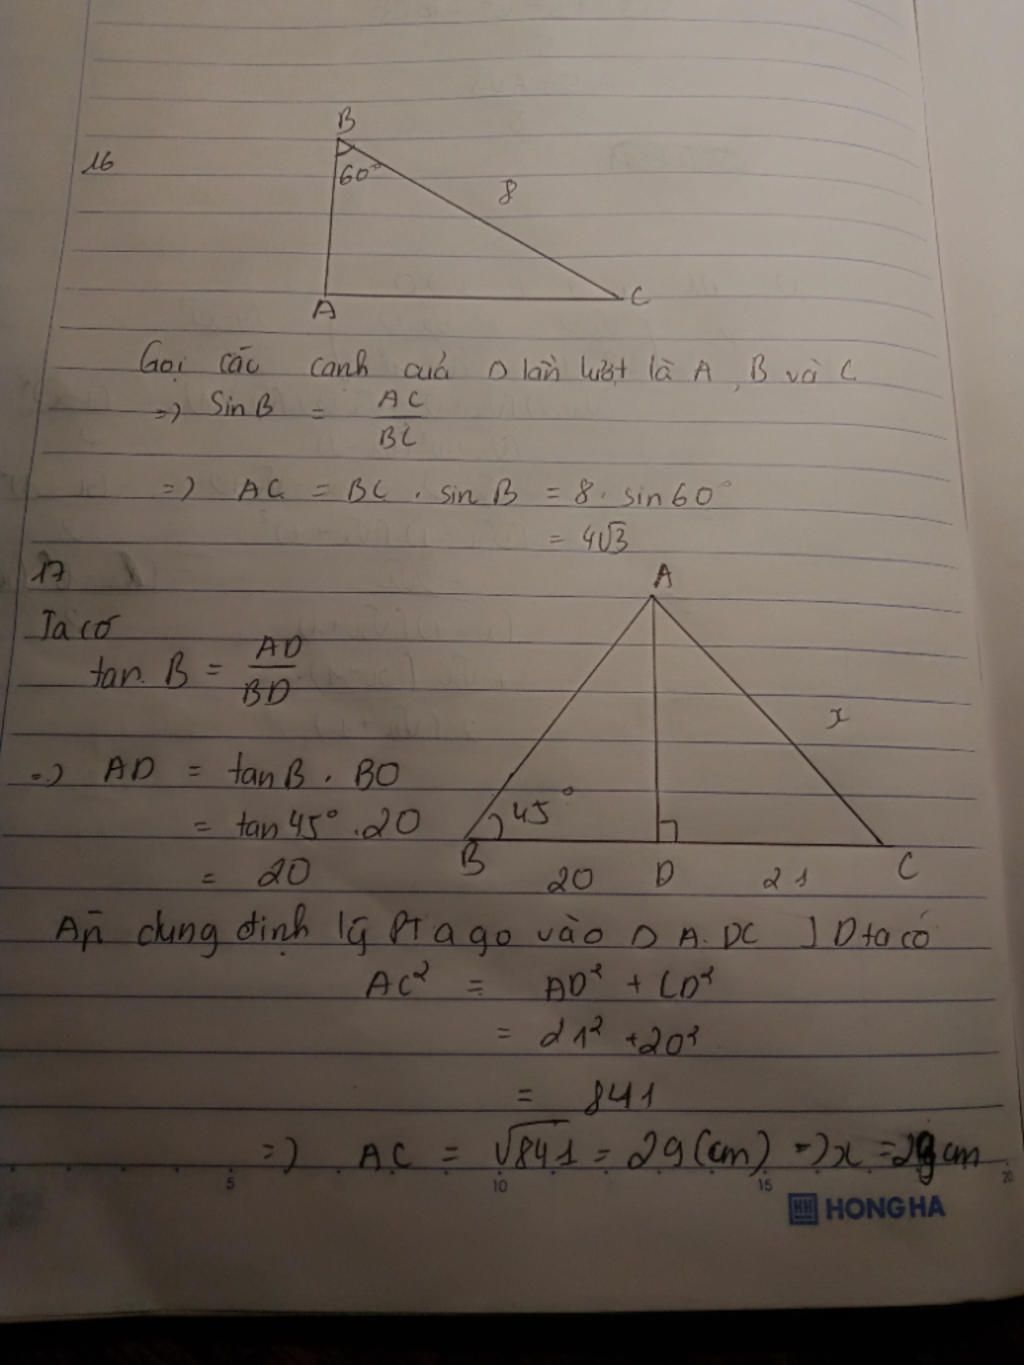 16
B
60°
8
A
C
Gọi các cạnh của Δ lần lượt là A, B và C
=> Sin B = AC / BC
=> AC = BC . sin B = 8 . sin 60°
= 4√3
17
Ta có
tan B = AD / BD
=> AD = tan B . BD
= tan 45° . 20
= 20
A
x
45°
B
20
D
21
C
định lý Ptago vào Δ ADC ta có
AC² = AD² + CD²
= 21² + 20²
= 841
=> AC = √841 = 29 (cm) => x = 29 cm
5
10
15
20
HH HONG HA